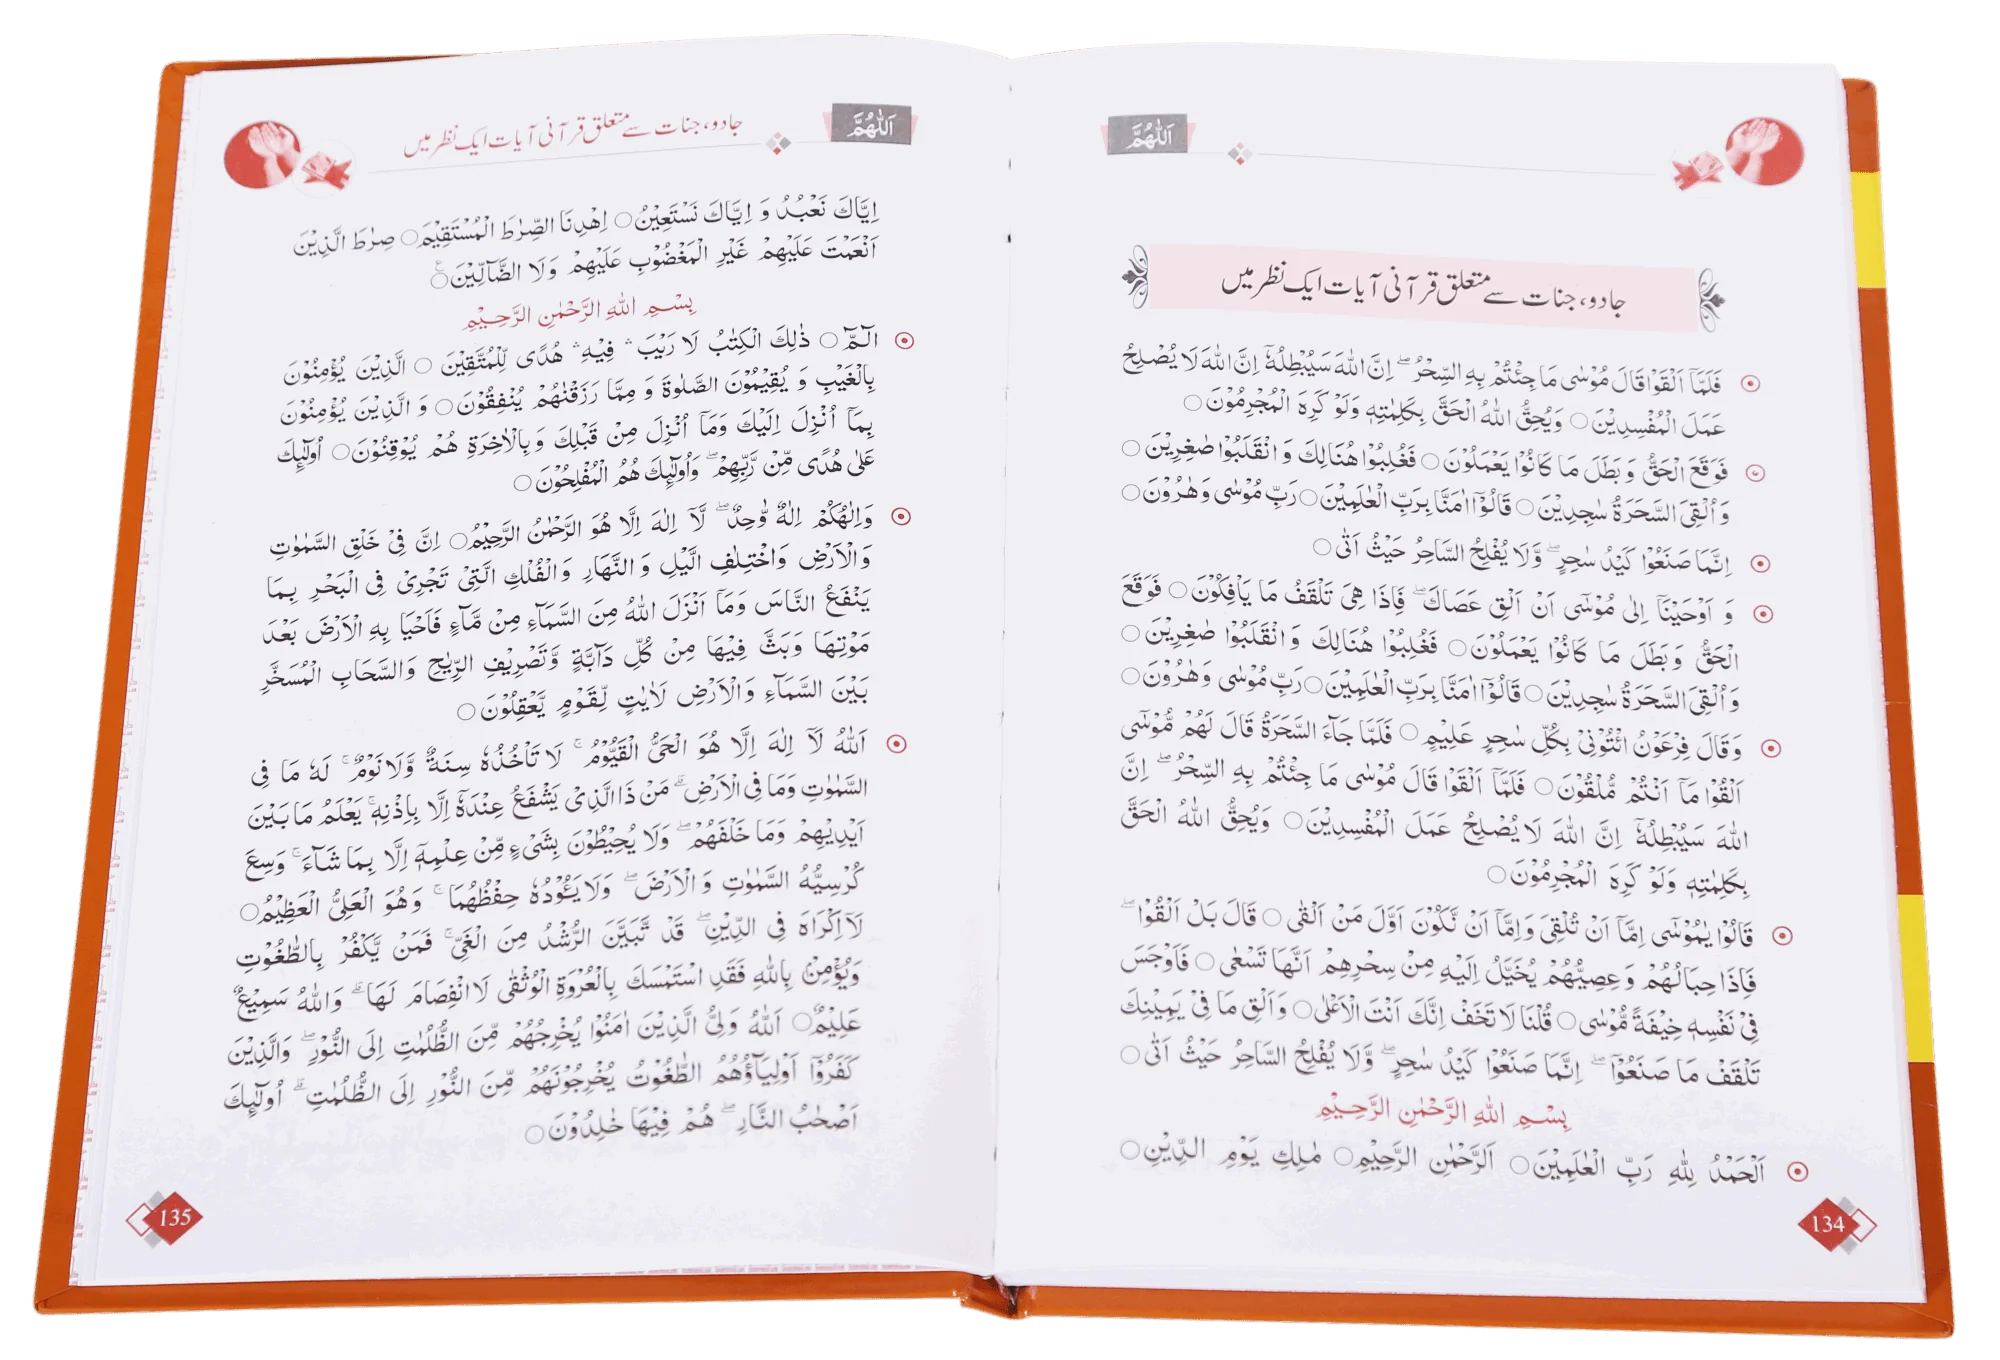 اَللّٰهُمَّ
جادو، جنات سے متعلق قرآنی آیات ایک نظر میں
فَلَمَّآ اَلْقَوْا قَالَ مُوْسٰى مَا جِئْتُمْ بِهِ السِّحْرُ ؕ اِنَّ اللّٰهَ سَيُبْطِلُهٗ اِنَّ اللّٰهَ لَا يُصْلِحُ
عَمَلَ الْمُفْسِدِيْنَ○ وَيُحِقُّ اللّٰهُ الْحَقَّ بِكَلِمٰتِهٖ وَلَوْ كَرِهَ الْمُجْرِمُوْنَ○
فَوَقَعَ الْحَقُّ وَبَطَلَ مَا كَانُوْا يَعْمَلُوْنَ○ فَغُلِبُوْا هُنَالِكَ وَانْقَلَبُوْا صٰغِرِيْنَ○
وَاُلْقِىَ السَّحَرَةُ سٰجِدِيْنَ○ قَالُوْٓا اٰمَنَّا بِرَبِّ الْعٰلَمِيْنَ○ رَبِّ مُوْسٰى وَهٰرُوْنَ○
اِنَّمَا صَنَعُوْا كَيْدُ سٰحِرٍ ؕ وَّلَا يُفْلِحُ السَّاحِرُ حَيْثُ اَتٰى○
وَ اَوْحَيْنَآ اِلٰى مُوْسٰٓى اَنْ اَلْقِ عَصَاكَ ؕ فَاِذَا هِىَ تَلْقَفُ مَا يَاْفِكُوْنَ○ فَوَقَعَ
الْحَقُّ وَبَطَلَ مَا كَانُوْا يَعْمَلُوْنَ○ فَغُلِبُوْا هُنَالِكَ وَانْقَلَبُوْا صٰغِرِيْنَ○
وَاُلْقِىَ السَّحَرَةُ سٰجِدِيْنَ○ قَالُوْٓا اٰمَنَّا بِرَبِّ الْعٰلَمِيْنَ○ رَبِّ مُوْسٰى وَهٰرُوْنَ○
وَقَالَ فِرْعَوْنُ ائْتُوْنِىْ بِكُلِّ سٰحِرٍ عَلِيْمٍ○ فَلَمَّا جَآءَ السَّحَرَةُ قَالَ لَهُمْ مُّوْسٰٓى
اَلْقُوْا مَآ اَنْتُمْ مُّلْقُوْنَ○ فَلَمَّآ اَلْقَوْا قَالَ مُوْسٰى مَا جِئْتُمْ بِهِ السِّحْرُ ؕ اِنَّ
اللّٰهَ سَيُبْطِلُهٗٓ اِنَّ اللّٰهَ لَا يُصْلِحُ عَمَلَ الْمُفْسِدِيْنَ○ وَيُحِقُّ اللّٰهُ الْحَقَّ
بِكَلِمٰتِهٖ وَلَوْ كَرِهَ الْمُجْرِمُوْنَ○
قَالُوْا يٰمُوْسٰٓى اِمَّآ اَنْ تُلْقِىَ وَاِمَّآ اَنْ نَّكُوْنَ اَوَّلَ مَنْ اَلْقٰى○ قَالَ بَلْ اَلْقُوْا ؕ
فَاِذَا حِبَالُهُمْ وَعِصِيُّهُمْ يُخَيَّلُ اِلَيْهِ مِنْ سِحْرِهِمْ اَنَّهَا تَسْعٰى○ فَاَوْجَسَ
فِىْ نَفْسِهٖ خِيْفَةً مُّوْسٰى○ قُلْنَا لَا تَخَفْ اِنَّكَ اَنْتَ الْاَعْلٰى○ وَاَلْقِ مَا فِىْ يَمِيْنِكَ
تَلْقَفْ مَا صَنَعُوْا ؕ اِنَّمَا صَنَعُوْا كَيْدُ سٰحِرٍ ؕ وَّلَا يُفْلِحُ السَّاحِرُ حَيْثُ اَتٰى○
بِسْمِ اللّٰهِ الرَّحْمٰنِ الرَّحِيْمِ
اَلْحَمْدُ لِلّٰهِ رَبِّ الْعٰلَمِيْنَ○ الرَّحْمٰنِ الرَّحِيْمِ○ مٰلِكِ يَوْمِ الدِّيْنِ○
134
اَللّٰهُمَّ
جادو، جنات سے متعلق قرآنی آیات ایک نظر میں
اِيَّاكَ نَعْبُدُ وَ اِيَّاكَ نَسْتَعِيْنُ○ اِهْدِنَا الصِّرٰطَ الْمُسْتَقِيْمَ○ صِرٰطَ الَّذِيْنَ
اَنْعَمْتَ عَلَيْهِمْ غَيْرِ الْمَغْضُوْبِ عَلَيْهِمْ وَلَا الضَّآلِّيْنَ○
بِسْمِ اللّٰهِ الرَّحْمٰنِ الرَّحِيْمِ
الٓمّٓ○ ذٰلِكَ الْكِتٰبُ لَا رَيْبَ ۛ فِيْهِ ۛ هُدًى لِّلْمُتَّقِيْنَ○ الَّذِيْنَ يُؤْمِنُوْنَ
بِالْغَيْبِ وَ يُقِيْمُوْنَ الصَّلٰوةَ وَ مِمَّا رَزَقْنٰهُمْ يُنْفِقُوْنَ○ وَ الَّذِيْنَ يُؤْمِنُوْنَ
بِمَآ اُنْزِلَ اِلَيْكَ وَمَآ اُنْزِلَ مِنْ قَبْلِكَ وَبِالْاٰخِرَةِ هُمْ يُوْقِنُوْنَ○ اُولٰٓئِكَ
عَلٰى هُدًى مِّنْ رَّبِّهِمْ ۗ وَاُولٰٓئِكَ هُمُ الْمُفْلِحُوْنَ○
وَاِلٰهُكُمْ اِلٰهٌ وّٰحِدٌ ۚ لَآ اِلٰهَ اِلَّا هُوَ الرَّحْمٰنُ الرَّحِيْمُ○ اِنَّ فِىْ خَلْقِ السَّمٰوٰتِ
وَالْاَرْضِ وَاخْتِلَافِ الَّيْلِ وَالنَّهَارِ وَالْفُلْكِ الَّتِىْ تَجْرِىْ فِى الْبَحْرِ بِمَا
يَنْفَعُ النَّاسَ وَمَآ اَنْزَلَ اللّٰهُ مِنَ السَّمَآءِ مِنْ مَّآءٍ فَاَحْيَا بِهِ الْاَرْضَ بَعْدَ
مَوْتِهَا وَبَثَّ فِيْهَا مِنْ كُلِّ دَآبَّةٍ وَّتَصْرِيْفِ الرِّيٰحِ وَالسَّحَابِ الْمُسَخَّرِ
بَيْنَ السَّمَآءِ وَالْاَرْضِ لَاٰيٰتٍ لِّقَوْمٍ يَّعْقِلُوْنَ○
اَللّٰهُ لَآ اِلٰهَ اِلَّا هُوَ الْحَىُّ الْقَيُّوْمُ ۚ لَا تَاْخُذُهٗ سِنَةٌ وَّلَا نَوْمٌ ۚ لَهٗ مَا فِى
السَّمٰوٰتِ وَمَا فِى الْاَرْضِ ؕ مَنْ ذَا الَّذِىْ يَشْفَعُ عِنْدَهٗٓ اِلَّا بِاِذْنِهٖ ۚ يَعْلَمُ مَا بَيْنَ
اَيْدِيْهِمْ وَمَا خَلْفَهُمْ ۚ وَلَا يُحِيْطُوْنَ بِشَىْءٍ مِّنْ عِلْمِهٖٓ اِلَّا بِمَا شَآءَ ۚ وَسِعَ
كُرْسِيُّهُ السَّمٰوٰتِ وَالْاَرْضَ ۚ وَلَا يَئُوْدُهٗ حِفْظُهُمَا ۚ وَهُوَ الْعَلِىُّ الْعَظِيْمُ○
لَآ اِكْرَاهَ فِى الدِّيْنِ ۚ قَدْ تَّبَيَّنَ الرُّشْدُ مِنَ الْغَىِّ ۚ فَمَنْ يَّكْفُرْ بِالطَّاغُوْتِ
وَيُؤْمِنْ بِاللّٰهِ فَقَدِ اسْتَمْسَكَ بِالْعُرْوَةِ الْوُثْقٰى لَا انْفِصَامَ لَهَا ؕ وَاللّٰهُ سَمِيْعٌ
عَلِيْمٌ○ اَللّٰهُ وَلِىُّ الَّذِيْنَ اٰمَنُوْا يُخْرِجُهُمْ مِّنَ الظُّلُمٰتِ اِلَى النُّوْرِ ؕ وَالَّذِيْنَ
كَفَرُوْٓا اَوْلِيٰٓاؤُهُمُ الطَّاغُوْتُ يُخْرِجُوْنَهُمْ مِّنَ النُّوْرِ اِلَى الظُّلُمٰتِ ؕ اُولٰٓئِكَ
اَصْحٰبُ النَّارِ ۚ هُمْ فِيْهَا خٰلِدُوْنَ○
135